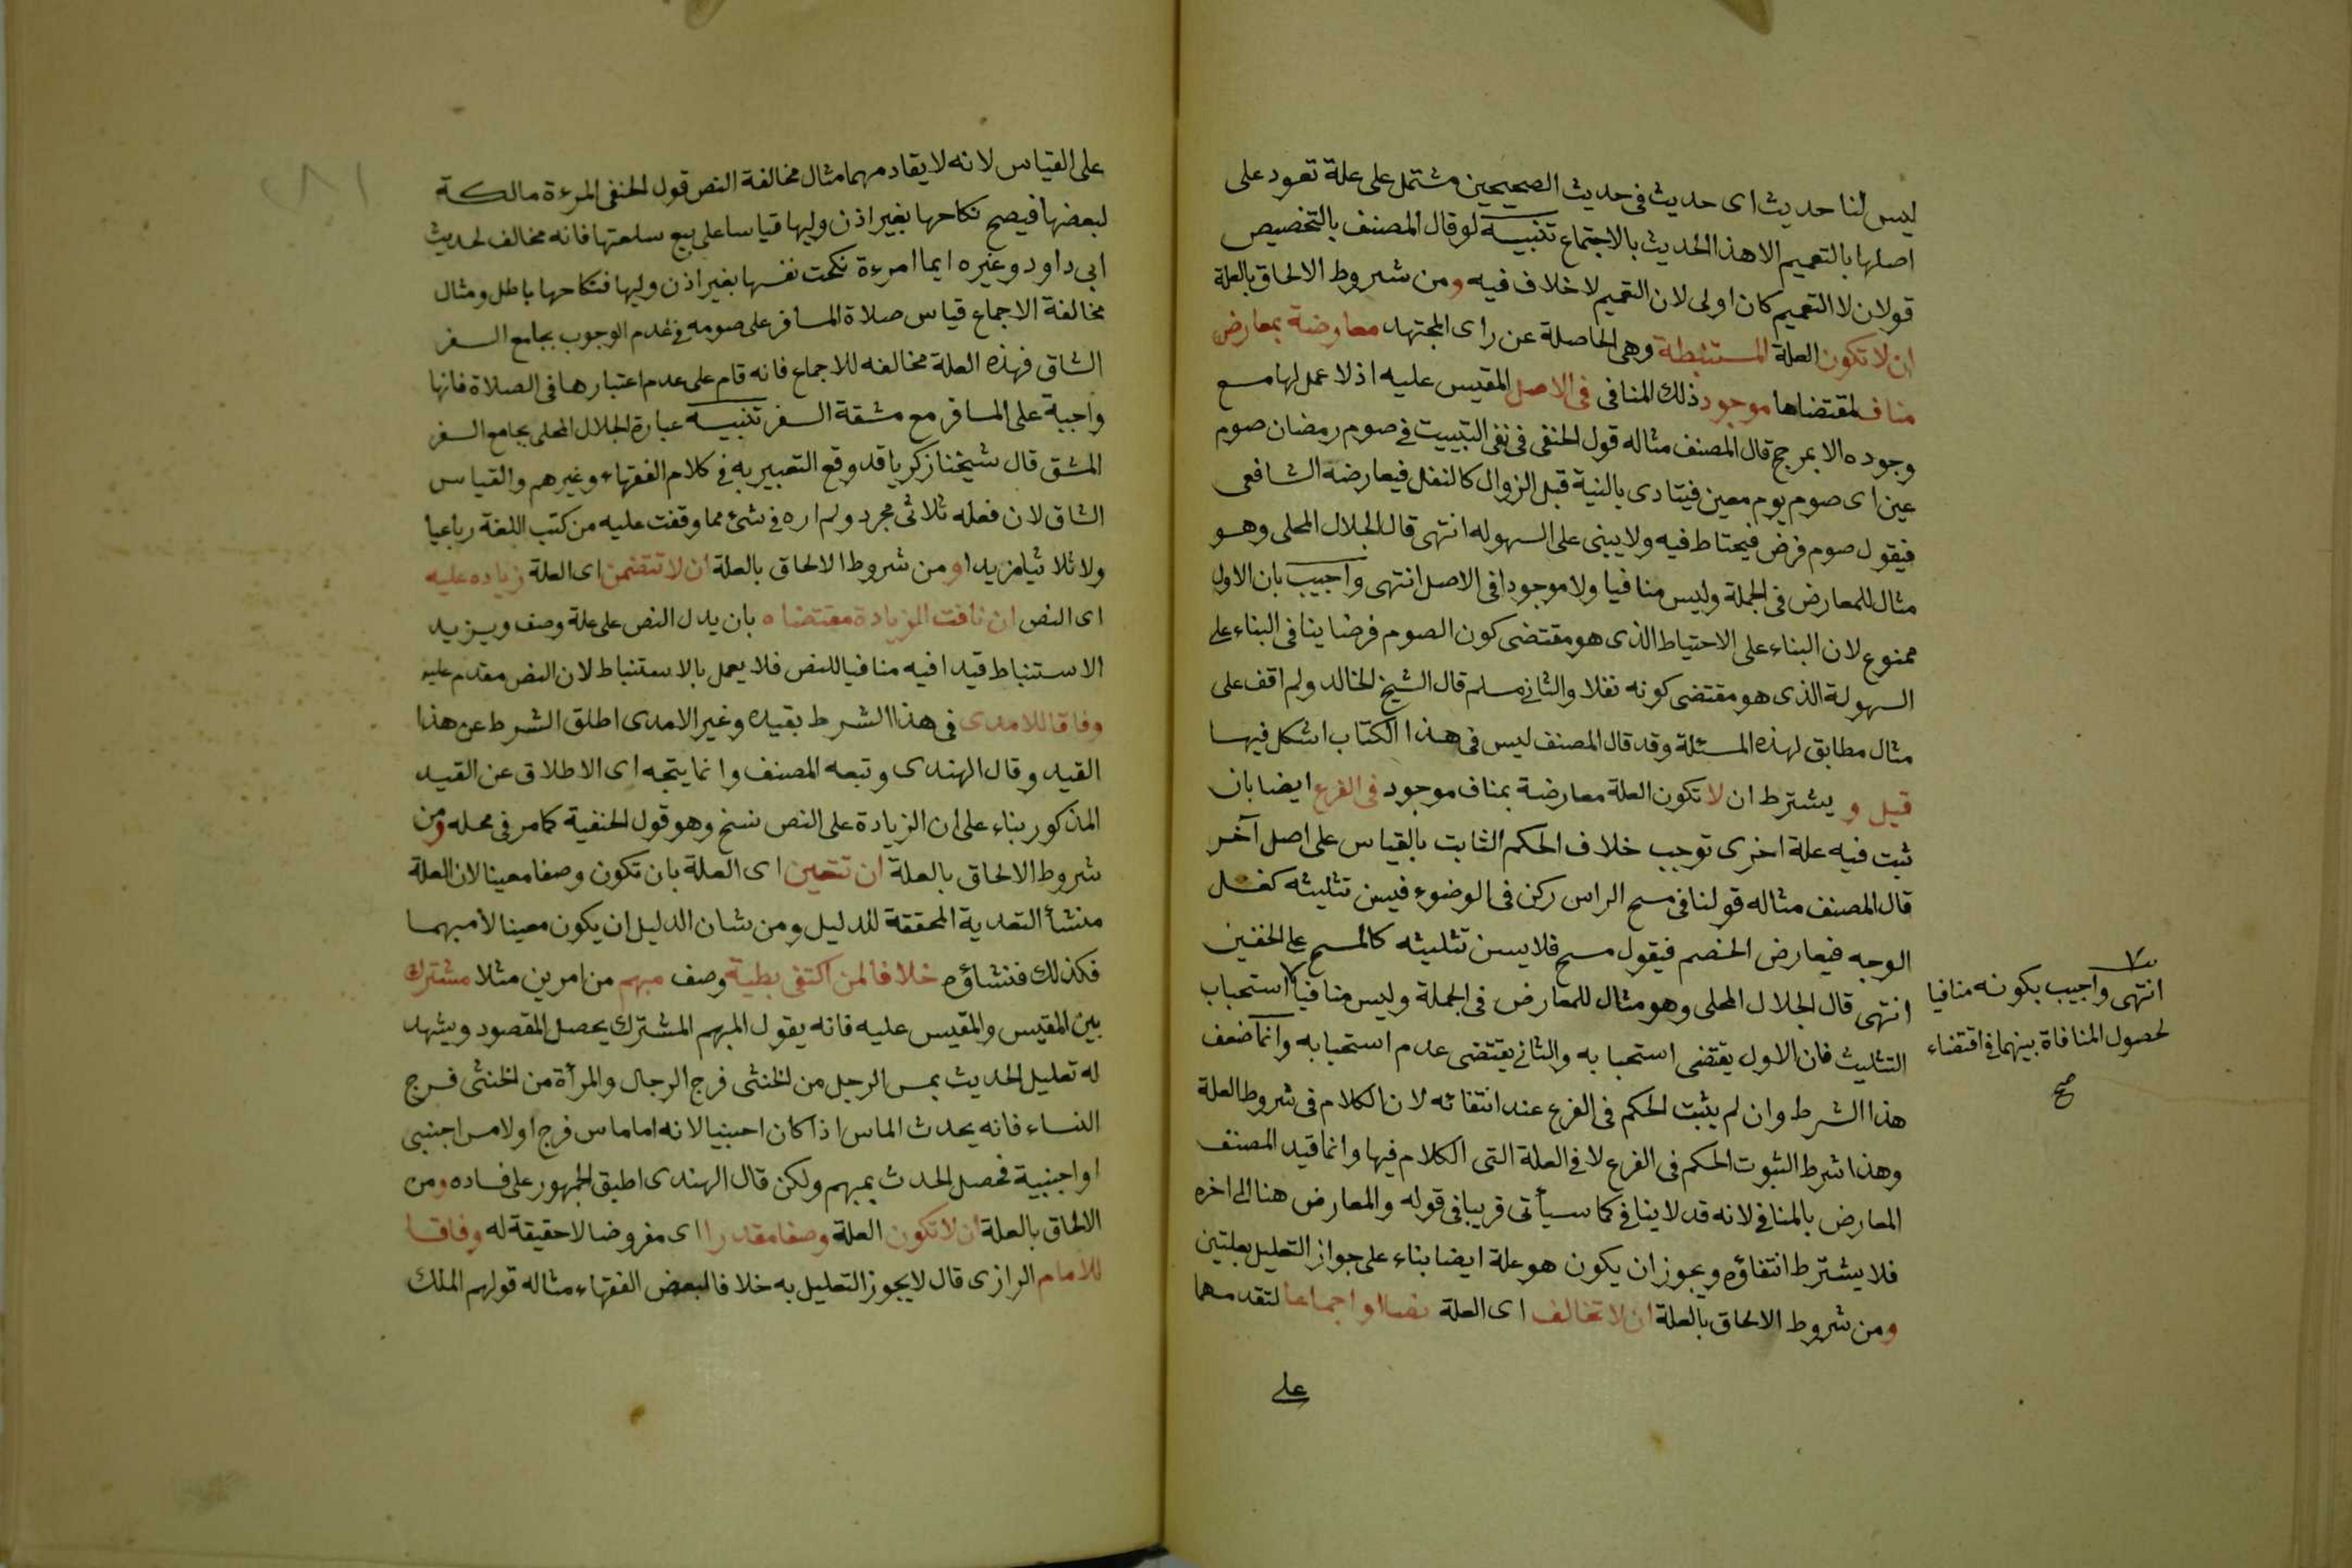 ليس لنا حديث اى حديث فى حديث الصحيحين مشتمل على علة تعود على
اصلها بالتعميم الا هذا الحديث بالاجتماع تنبيه لو قال المصنف بالتخصيص
قولان لا التعميم كان اولى لان التعميم لا خلاف فيه ومن شروط الالحاق بالعلة
ان لا تكون العلة المستنبطة وهى الحاصلة عن راى المجتهد معارضة بمعارض
مناف لمقتضاها موجود ذلك المنافى فى الاصل المقيس عليه اذ لا عمل لها مع
وجوده الا بمرجح قال المصنف مثاله قول الحنفى فى نفى التبييت فى صوم رمضان صوم
عين اى صوم يوم معين فيتادى بالنية قبل الزوال كالنفل فيعارضه الشافعى
فيقول صوم فرض فيحتاط فيه ولا يبنى على السهوله انتهى قال الجلال المحلى وهو
مثال للمعارض فى الجملة وليس منافيا ولا موجودا فى الاصل انتهى واجيب بان الاول
ممنوع لان البناء على الاحتياط الذى هو مقتضى كون الصوم فرضا ينافى البناء على
السهولة الذى هو مقتضى كونه نفلا والثانى مسلم قال الشيخ الخالد ولم اقف على
مثال مطابق لهذه المسئلة وقد قال المصنف ليس فى هذا الكتاب اشكل فيها
قيل و يشترط ان لا تكون العلة معارضة بمناف موجود فى الفرع ايضا بان
ثبت فيه علة اخرى توجب خلاف الحكم الثابت بالقياس على اصل آخر
قال المصنف مثاله قولنا فى مسح الراس ركن فى الوضوء فيسن تثليثه كغسل
الوجه فيعارض الخصم فيقول مسح فلا يسن تثليثه كالمسح على الخفين
انتهى قال الجلال المحلى وهو مثال للمعارض فى الجملة وليس منافيا استحباب
التثليث فان الاول يقتضى استحبابه والثانى يقتضى عدم استحبابه وانما ضعف
هذا الشرط وان لم يثبت الحكم فى الفرع عند انتفائه لان الكلام فى شروط العلة
وهذا شرط الثبوت الحكم فى الفرع لا فى العلة التى الكلام فيها وانما قيد المصنف
المعارض بالمنافى لانه قد لا ينافى كما سيأتى قريبا فى قوله والمعارض هنا الى اخره
فلا يشترط انتفاؤه ويجوز ان يكون هو علة ايضا بناء على جواز التعليل بعلتين
ومن شروط الالحاق بالعلة ان لا تخالف اى العلة نصا او اجماعا لتقدمهما
على
انتهى واجيب بكونه منافيا
لحصول المنافاة بينهما فى اقتضاء
صح
على القياس لانه لا يقاد مهما مثال مخالفة النص قول الحنفى المرءة مالكة
لبعضها فيصح نكاحها بغير اذن وليها قياسا على بيع سلعتها فانه مخالف لحديث
ابى داود وغيره ايما امرءة نكحت نفسها بغير اذن وليها فنكاحها باطل ومثال
مخالفة الاجماع قياس صلاة المسافر على صومه فى عدم الوجوب بجامع السفر
الشاق فهذه العلة مخالفه للاجماع فانه قام على عدم اعتبارها فى الصلاة فانها
واجبة على المسافر مع مشقة السفر تنبيه عبارة الجلال المحلى بجامع السفر
المشق قال شيخنا زكريا قد وقع التعبير به فى كلام الفقهاء وغيرهم والقياس
الشاق لان فعله ثلاثى مجرد ولم اره فى شئ مما وقفت عليه من كتب اللغة رباعيا
ولا ثلاثيا مزيدا ومن شروط الالحاق بالعلة ان لا تتضمن اى العلة زياده عليه
اى النص ان نافت الزيادة مقتضاه بان يدل النص على علة وصف ويزيد
الاستنباط قيدا فيه منافيا للنص فلا يعمل بالاستنباط لان النص مقدم عليه
وفاقا للامدى فى هذا الشرط بقيده وغير الامدى اطلق الشرط عن هذا
القيد وقال الهندى وتبعه المصنف وانما يتجه اى الاطلاق عن القيد
المذكور بناء على ان الزيادة على النص نسخ وهو قول الحنفية كما مر فى محله ومن
شروط الالحاق بالعلة ان تتعين اى العلة بان تكون وصفا معينا لان العلة
منشأ التعدية المحققة للدليل ومن شان الدليل ان يكون معينا لا مبهما
فكذلك فنشاؤه خلافا لمن اكتفى بطية وصف مبهم من امرين مثلا مشترك
بين المقيس والمقيس عليه فانه يقول المبهم المشترك يحصل المقصود ويشهد
له تعليل الحديث بمس الرجل من الخنثى فرج الرجال والمرأة من الخنثى فرج
النساء فانه يحدث الماس اذا كان اجنبيا لانه اما ماس فرج او لامس اجنبى
او اجنبية فحصل الحدث بمبهم ولكن قال الهندى اطبق الجمهور على فساده ومن
الالحاق بالعلة ان لا تكون العلة وصفا مقدرا اى مفروضا لا حقيقة له وفاقا
للامام الرازى قال لا يجوز التعليل به خلافا لبعض الفقهاء مثاله قولهم الملك